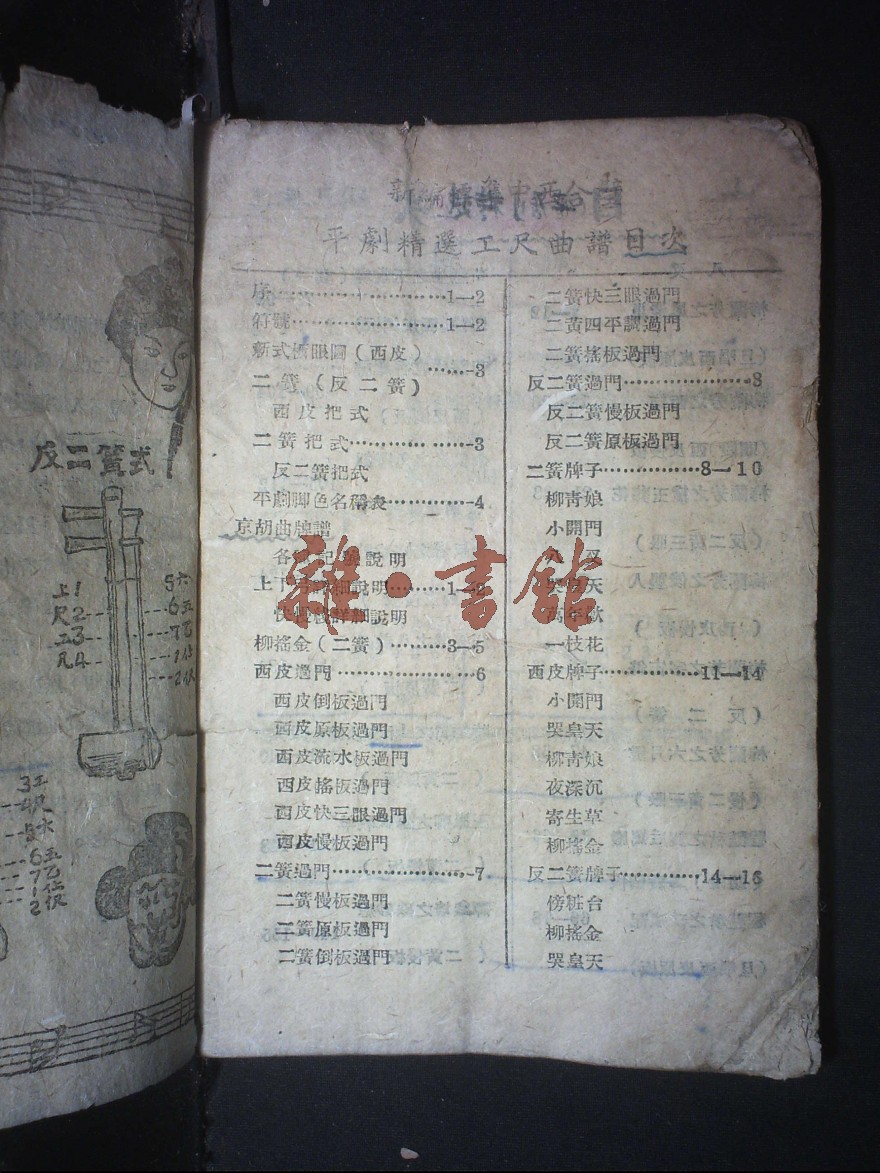 反二簧式
上1
尺2
工3
凡4
5六
6五
7乙
1仩
2伬
3工
6五
7乙
1仩
2伬
平劇精選工尺曲譜目次
序………………………1—2
符號……………………1—2
新式板眼圖(西皮)
二簧(反二簧)………3
西皮把式
二簧把式………………3
反二簧把式
平劇脚色名稱表…………4
京胡曲牌譜
說明
詳細說明………1—2
快慢板詳細說明
柳搖金(二簧)………3—5
西皮過門…………………6
西皮倒板過門
西皮原板過門
西皮流水板過門
西皮搖板過門
西皮快三眼過門
西皮慢板過門
二簧過門…………………7
二簧慢板過門
二簧原板過門
二簧倒板過門
二簧快三眼過門
二黃四平調過門
二簧搖板過門
反二簧過門………………8
反二簧慢板過門
反二簧原板過門
二簧牌子……………8—10
柳青娘
小開門
哭皇天
萬年歡
一枝花
西皮牌子……………11—14
小開門
哭皇天
柳青娘
夜深沉
寄生草
柳搖金
反二簧牌子…………14—16
傍粧台
柳搖金
哭皇天
雜·書館